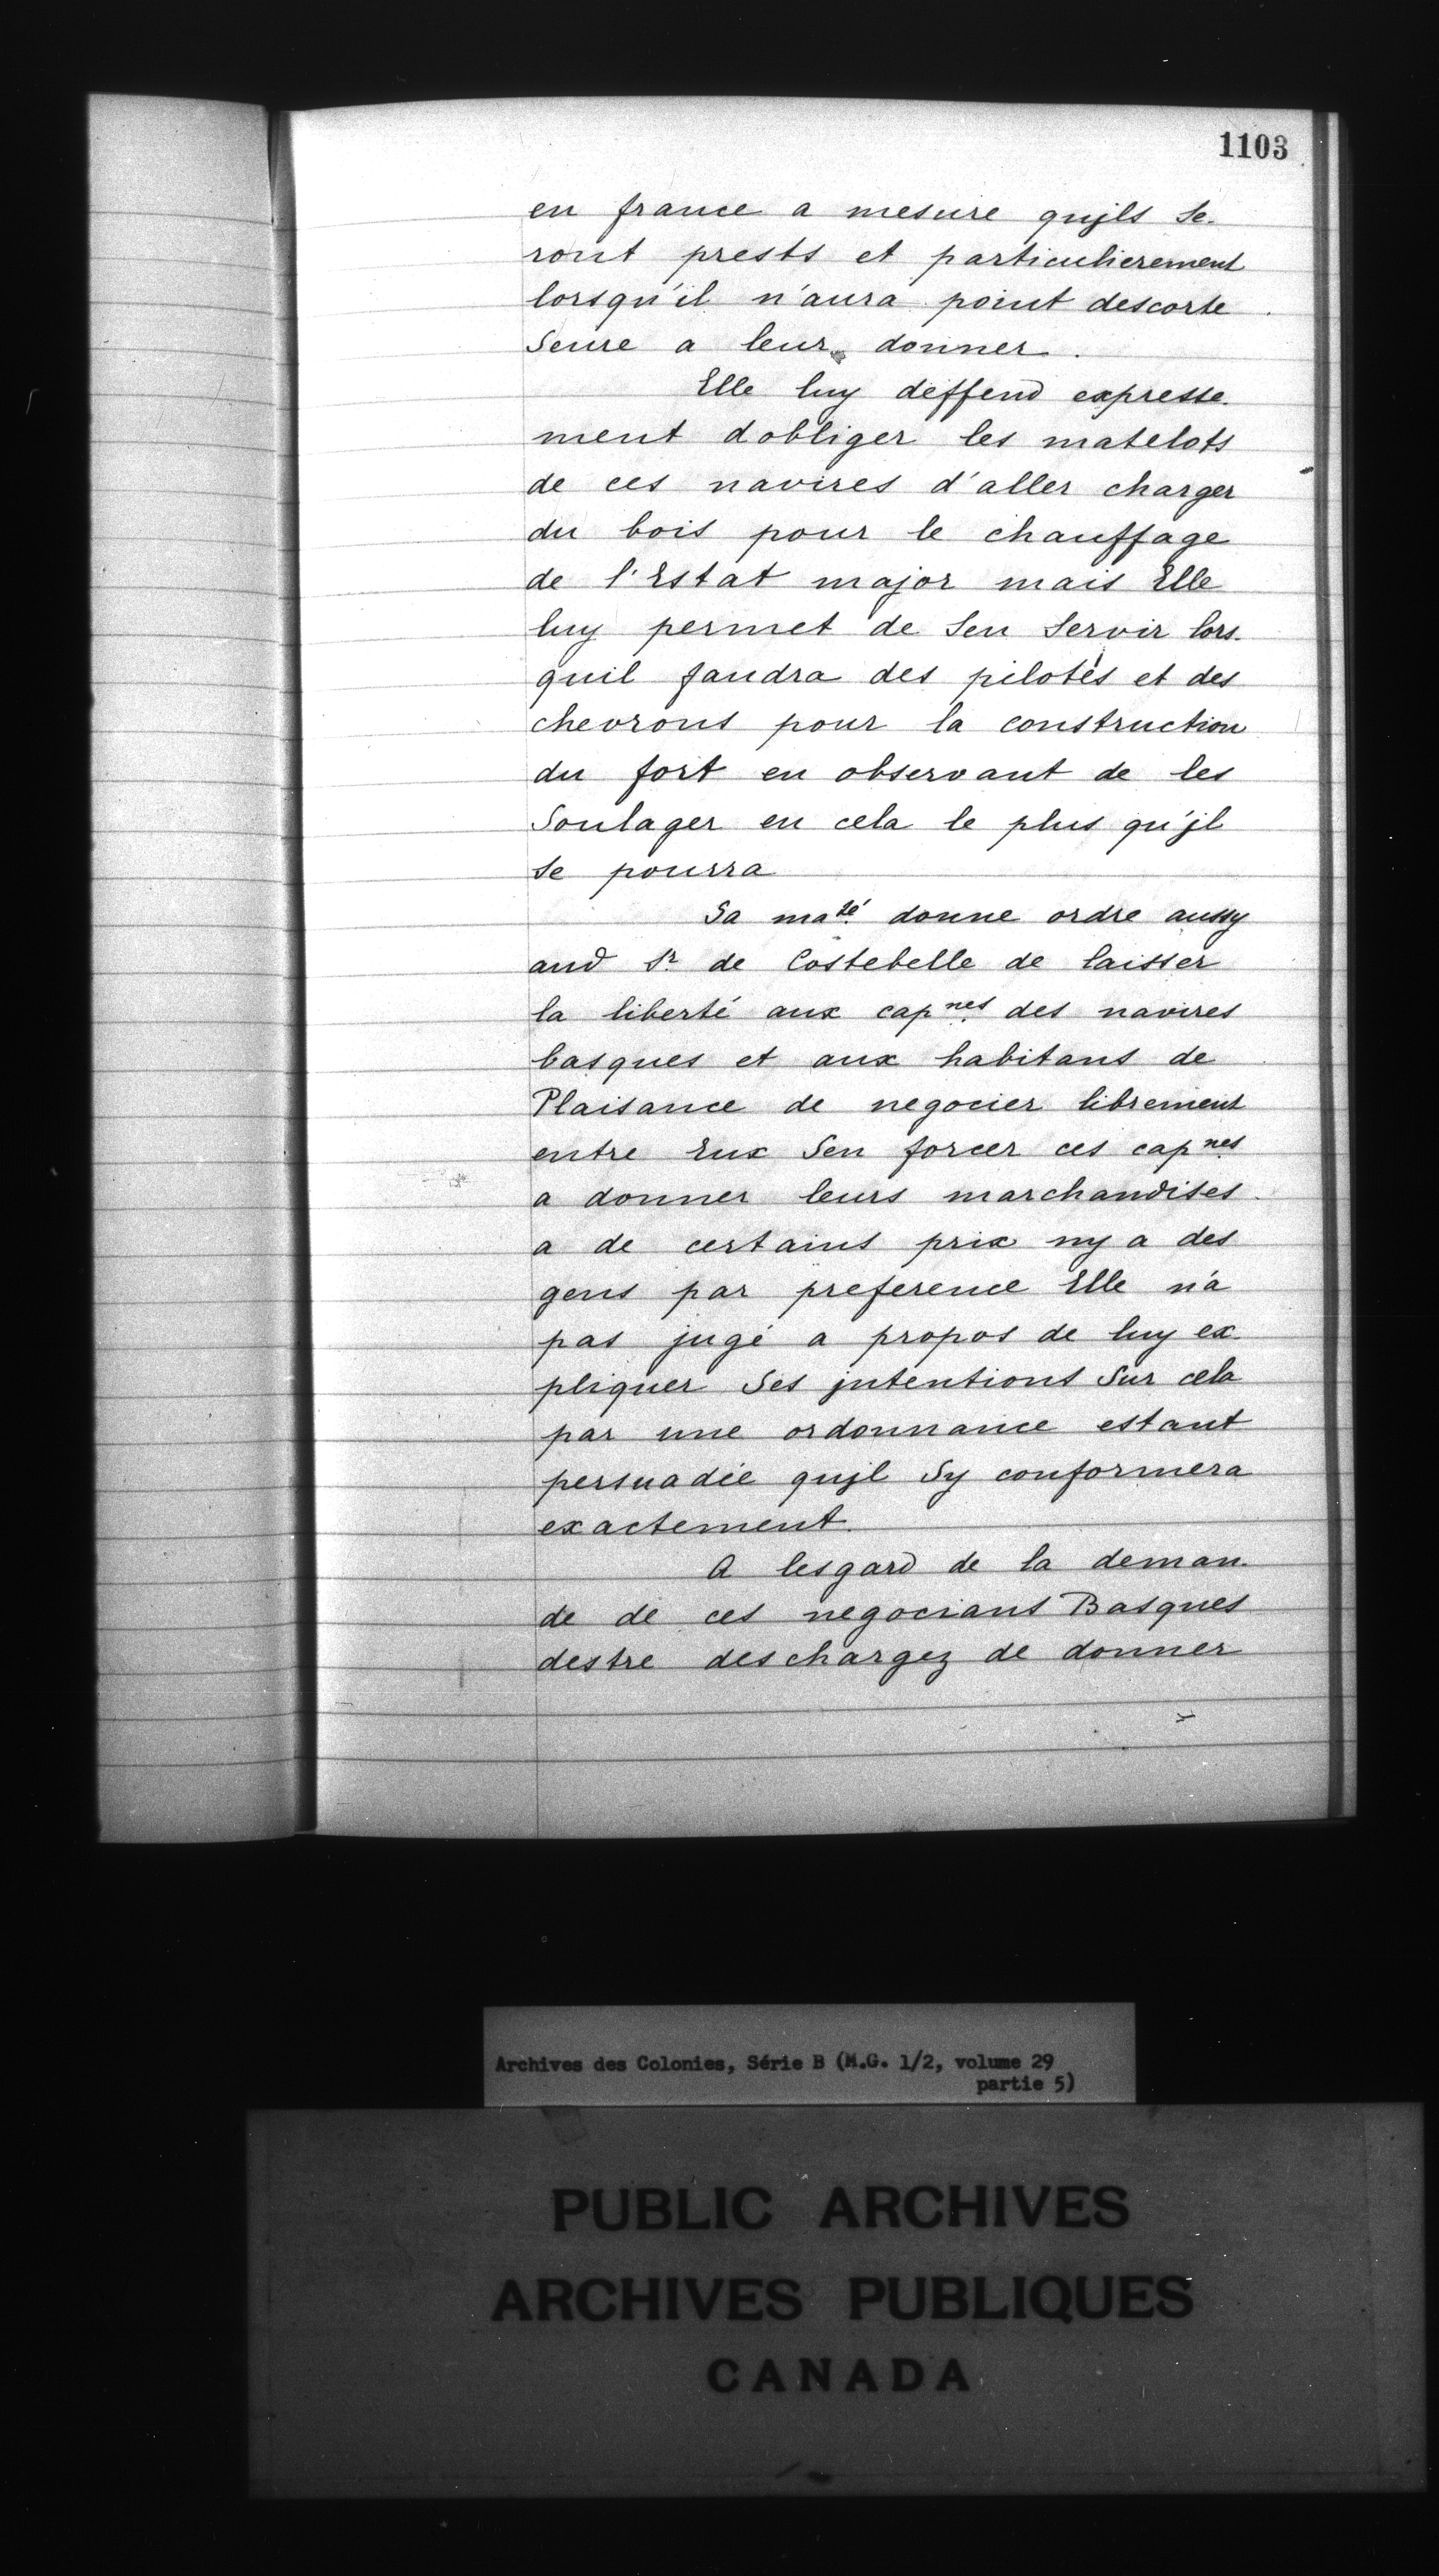 1103
en france a mesure qujls se-
ront prests et particulierement
lorsqu'il n'aura point descorte
Seure a leur donner.
Elle luy deffend expresse-
ment dobliger les matelots
de ces navires d'aller charger
du bois pour le chauffage
de l'Estat major mais Elle
luy permet de Sen Servir lors-
quil faudra des pilotis et des
chevrons pour la construction
du fort en observant de les
Soulager en cela le plus qu'jl
se pourra
Sa maté donne ordre aussy
aud Sr de Costebelle de laisser
la liberté aux capnes des navires
basques et aux habitans de
Plaisance de negocier librement
entre Eux Sen forcer ces capnes
a donner leurs marchandises
a de certains prix ny a des
gens par preference Elle n'a
pas jugé a propos de luy ex
pliquer Ses jntentions Sur cela
par une ordonnance estant
persuadée qujl Sy conformera
exactement.
A lesgard de la deman-
de de ces negocians Basques
destre deschargez de donner
Archives des Colonies, Série B (M.G. 1/2, volume 29
partie 5)
PUBLIC ARCHIVES
ARCHIVES PUBLIQUES
CANADA